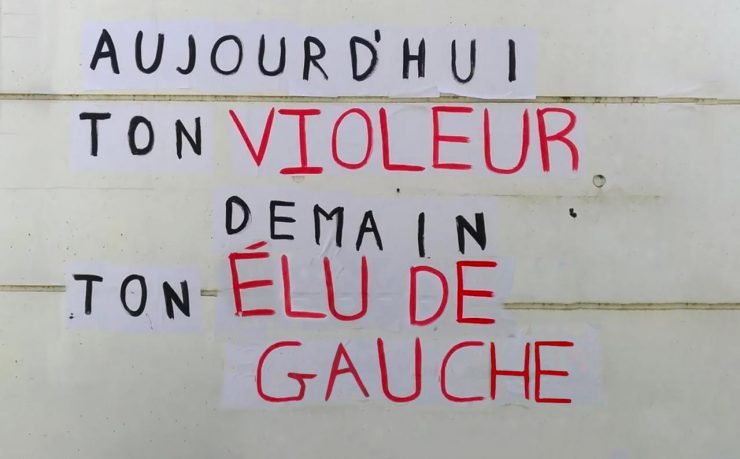 AUJOURD'HUI
TON VIOLEUR
DEMAIN
TON ÉLU DE
GAUCHE